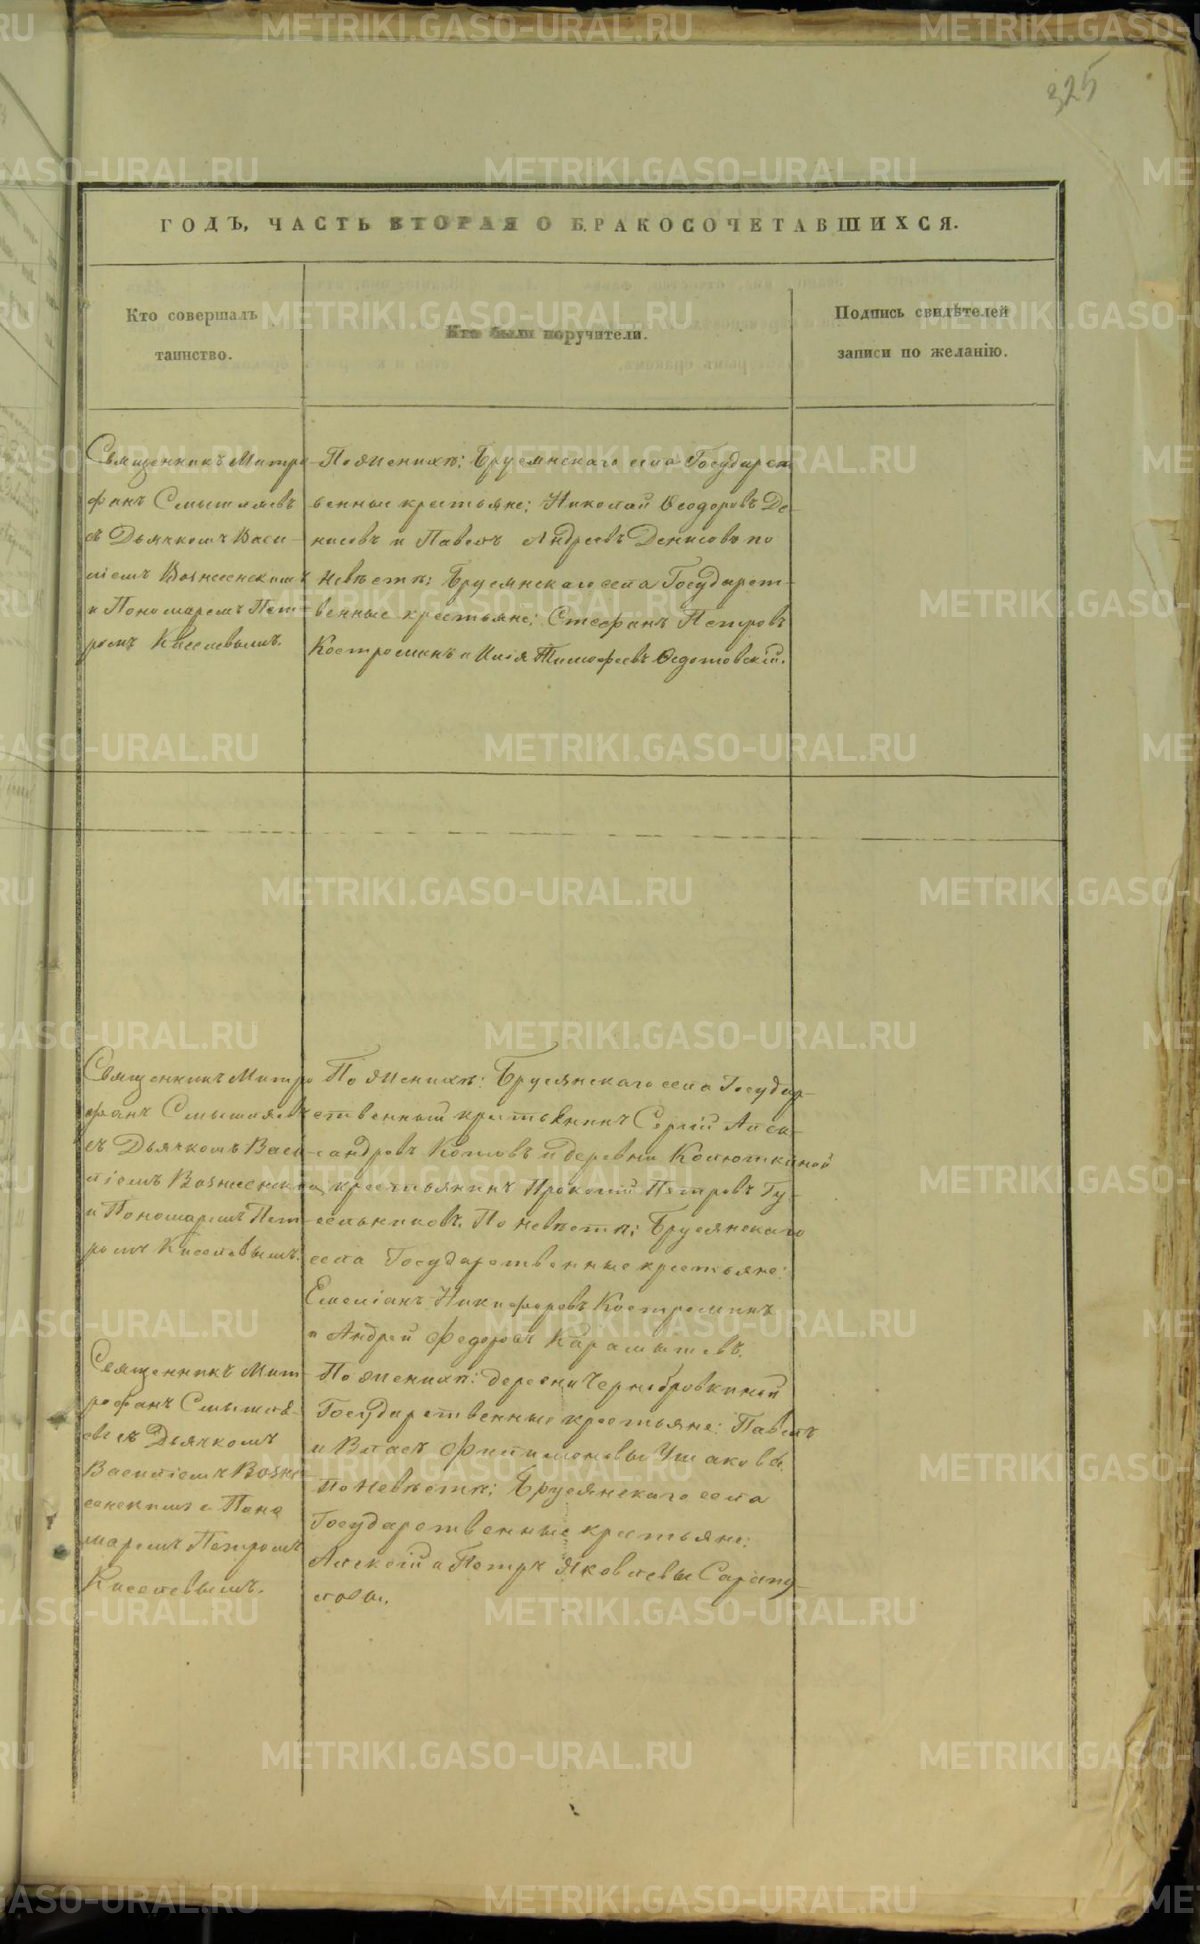 325
ГОДЪ, ЧАСТЬ ВТОРАЯ О БРАКОСОЧЕТАВШИХСЯ.
Кто совершалъ
таинство.
Кто были поручители.
Подпись свидѣтелей
записи по желанію.
Священникъ Митро
фанъ Смышляевъ
съ Дьячкомъ Васи-
ліемъ Вознесенскимъ
и Пономаремъ Пет-
ромъ Киселевымъ.
По женихѣ: Бруснянскаго села Государст
венные крестьяне; Николай Ѳеодоровъ Де-
нисовъ и Павелъ Андреевъ Денисовъ по
невѣстѣ: Бруснянскаго села Государст-
венные крестьяне; Стефанъ Петровъ
Костроминъ и Илія Тимофеевъ Ѳедотовскій.
Священникъ Митро
фанъ Смышляевъ
съ Дьячкомъ Васи-
ліемъ Вознесенским
и Пономаремъ Пет-
ромъ Киселевымъ.
По женихѣ: Бруснянскаго села Государ-
ственный крестьянинъ Сергій Алек-
сандровъ Котовъ и деревни Колюткиной
крестьянинъ Прокопій Петровъ Гу-
сельниковъ. По невѣстѣ: Бруснянскаго
села Государственные крестьяне:
Емеліанъ Никифоровъ Костроминъ
и Андрей Федоровъ Карамышевъ.
Священникъ Мит-
рофанъ Смышля-
евъ съ Дьячкомъ
Василіемъ Возне-
сенскимъ и Поно
маремъ Петромъ
Киселевымъ.
По женихѣ: деревни Чернобровкиной
Государственные крестьяне: Павелъ
и Власъ Филимоновы Ушаковы.
По невѣстѣ: Бруснянскаго села
Государственные крестьяне:
Алексій и Петръ Яковлевы Сарапу-
ловы.
METRIKI.GASO-URAL.RU